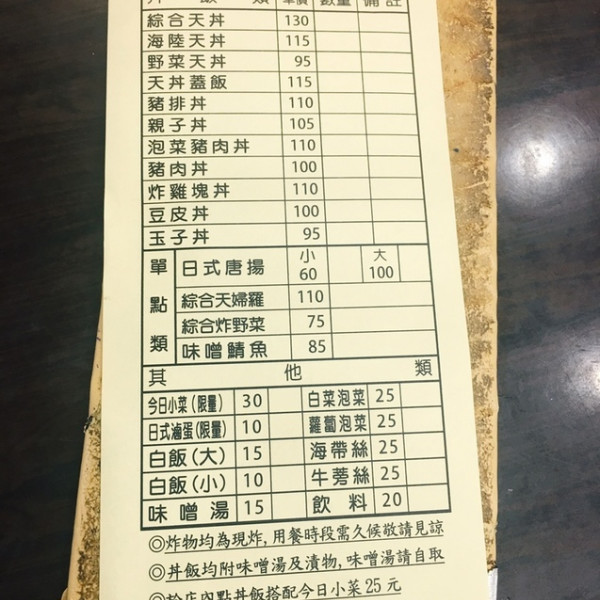 丼飯類 單價 數量 備註
綜合天丼 130
海陸天丼 115
野菜天丼 95
天丼蓋飯 115
豬排丼 110
親子丼 105
泡菜豬肉丼 110
豬肉丼 100
炸雞塊丼 110
豆皮丼 100
玉子丼 95
單點類
日式唐揚 小60 大100
綜合天婦羅 110
綜合炸野菜 75
味噌鯖魚 85
其他類
今日小菜(限量) 30 白菜泡菜 25
日式滷蛋(限量) 10 蘿蔔泡菜 25
白飯(大) 15 海帶絲 25
白飯(小) 10 牛蒡絲 25
味噌湯 15 飲料 20
◎炸物均為現炸,用餐時段需久候敬請見諒
◎丼飯均附味噌湯及漬物,味噌湯請自取
◎於店內點丼飯搭配今日小菜25元